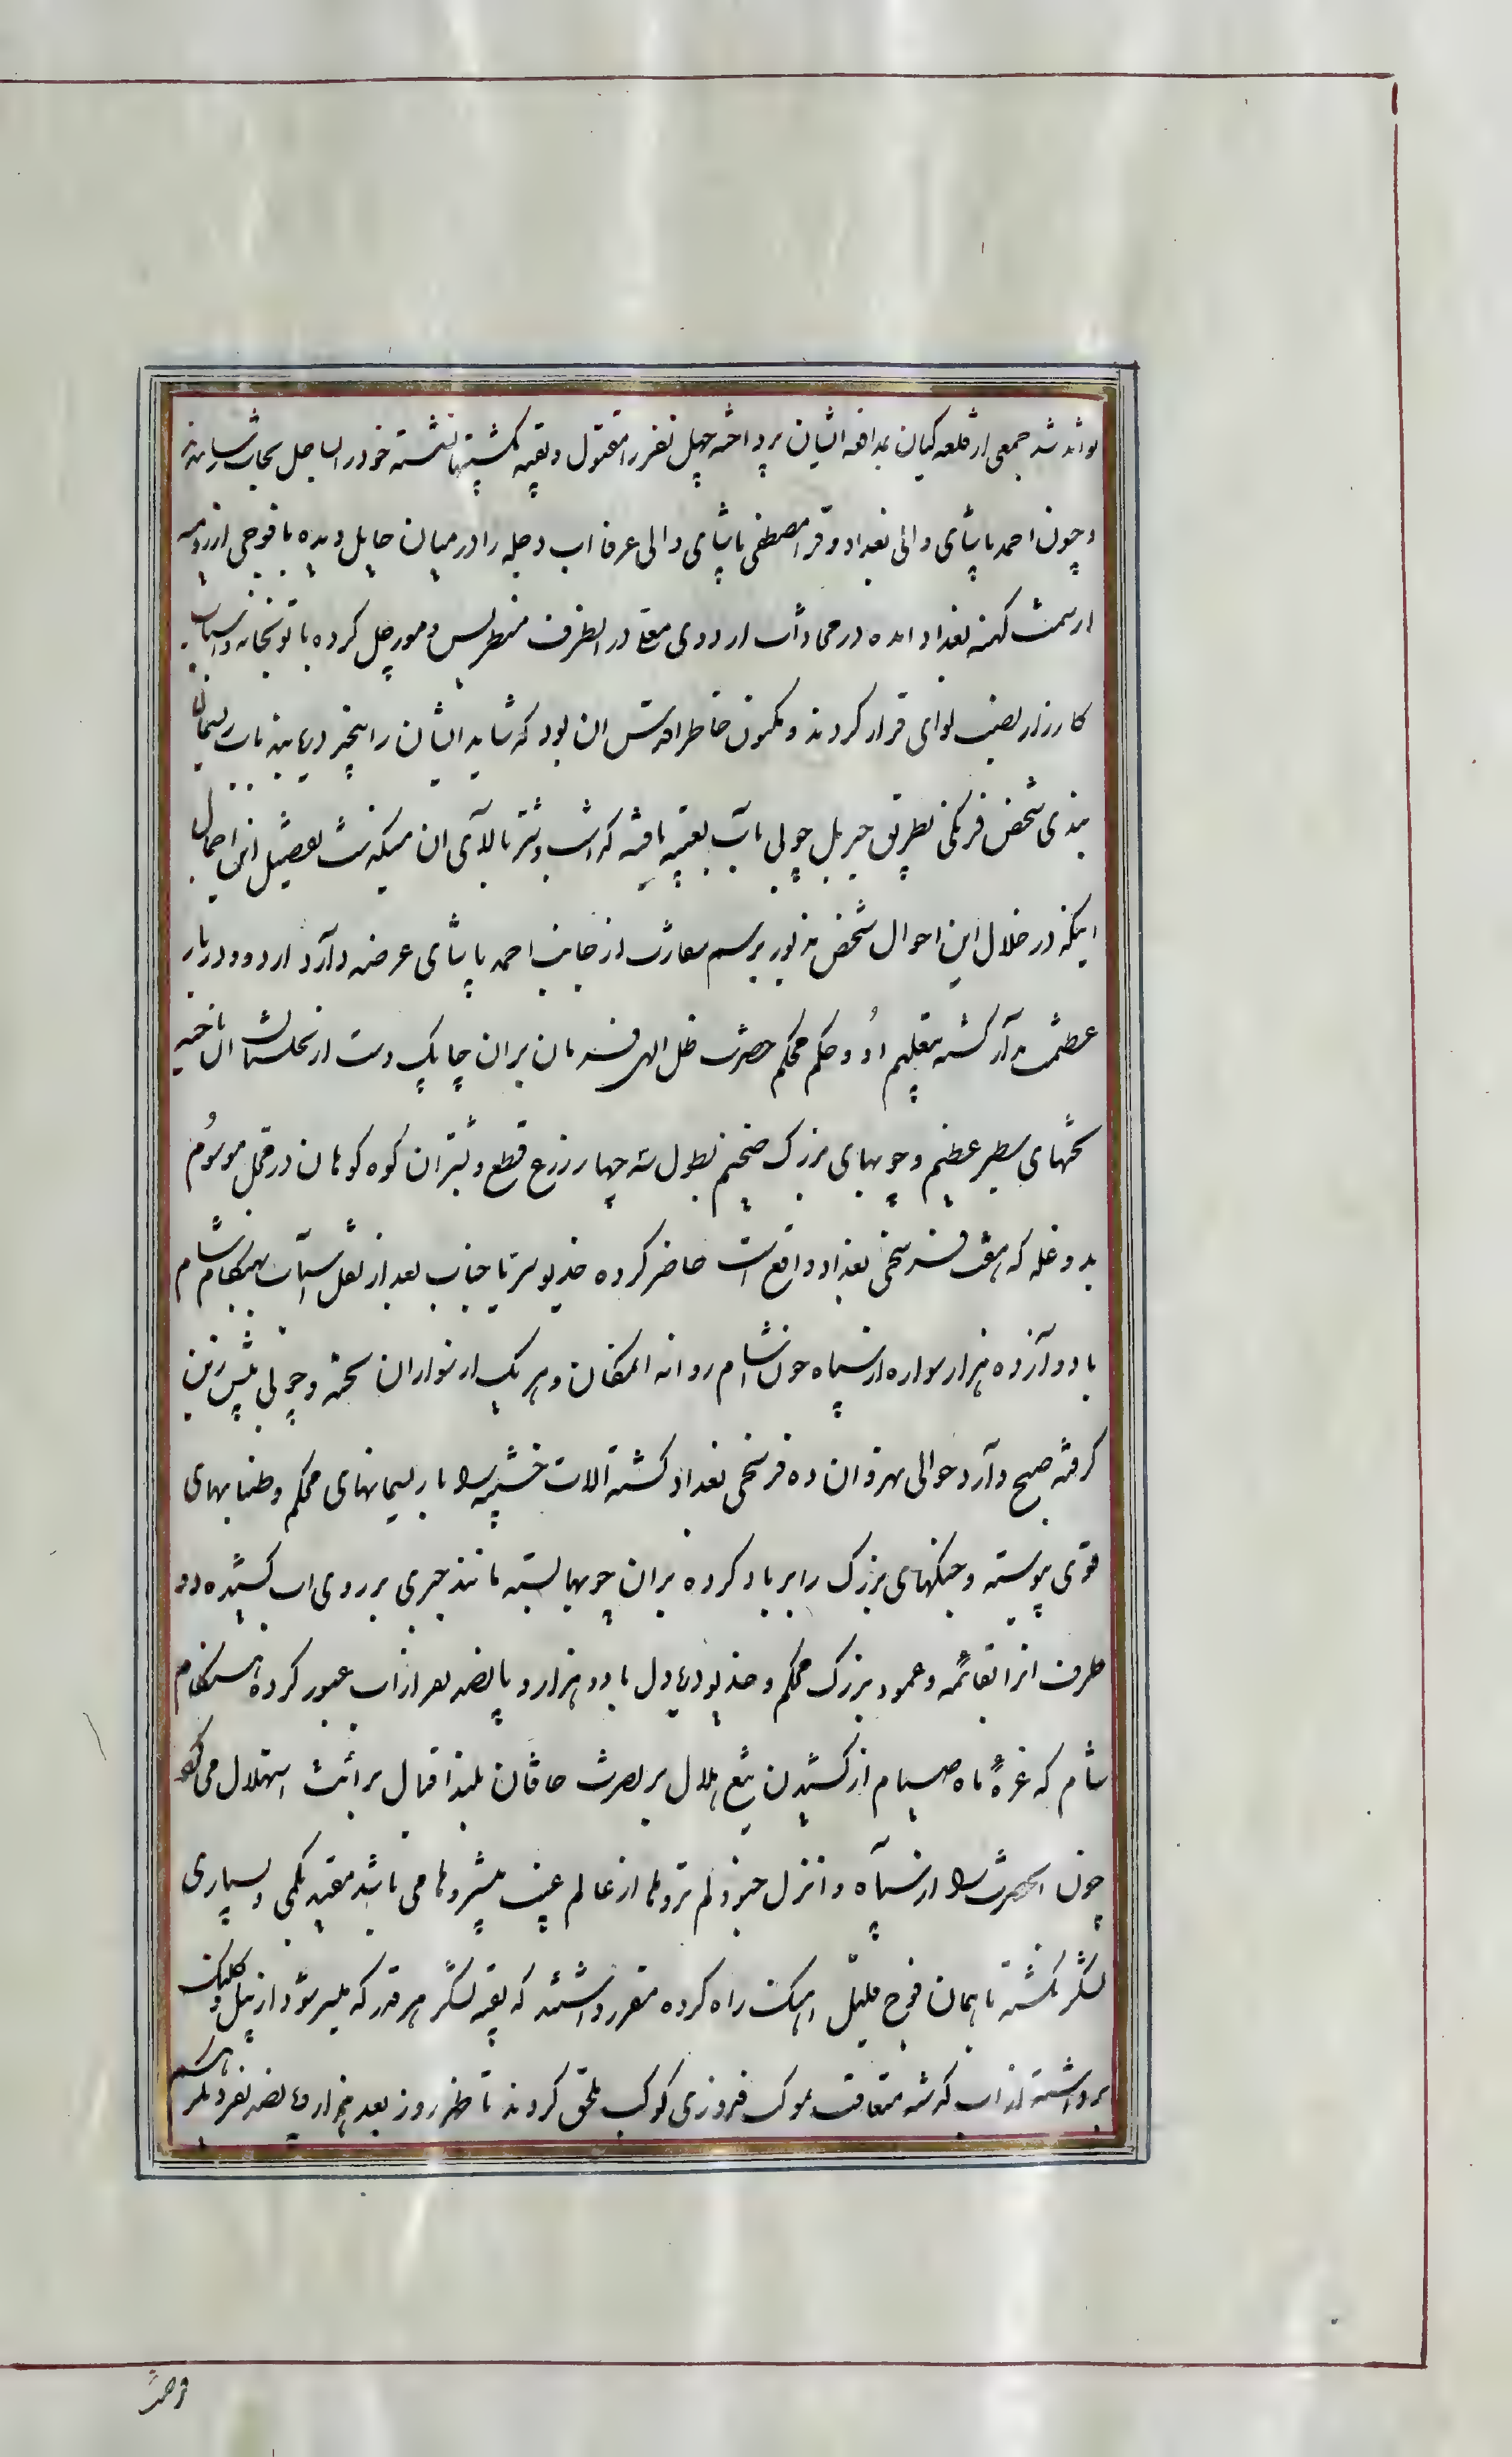 توانند شد جمعی از قلعه کیان بمدافعه ایشان پرداخته چهل نفر را مقتول و بقیه بکشتیها نشسته خود را بساحل نجات رسانیدند
و چون احمد پاشای والی بغداد و قرا مصطفی پاشای والی عرفا اب دجله را در میان حایل دیده با فوجی از رومیه
از سمت کهنه بغداد امده در محاذات اردوی معلی در انطرف متطریس و مورچل کرده با توپخانه و اسباب
کارزار نصب لوای قرار کردند و مکنون خاطر اقدس ان بود که شاید ایشان را بیخبر دریابند باب ریسمان
بندی شخص فرنگی بطریق جسر پل چوبی باب تعبیه یافته که اسب و شتر بالای ان میگذشت تفصیل این اجمال
اینکه در خلال این احوال شخص مذبور برسم سفارت از جانب احمد پاشای عرضه وارد اردو و دربار
عظمت مدار گشته بتعلیم او و حکم محکم حضرت ظل الهی فرمان بران چابک دست از نخلستان ان ناحیه
تختهای سطبر عظیم و چوبهای بزرک ضخیم بطول سه چهار زرع قطع و شتران کوه کوهان در محل موسوم
بدوغله که هفت فرسخی بغداد واقع است حاضر کرده خدیو سریا جناب بعد از نقل اسباب بهنکام شام
با دوازده هزار سواره از سپاه خون اشام روانه المکان و هر یک از سواران تخته و چوبی پیش زین
گرفته صبح وارد حوالی بهروان ده فرسخی بغداد گشته آلات خشبیه را با ریسمانهای محکم و طنابهای
قوی پیوسته و خیکهای بزرک را پر باد کرده بران چوبها بسته مانند جسری بر روی اب کشیده دو
طرف انرا بقائمه و عمود بزرک محکم و خدیو دریادل با دو هزار و پانصد نفر از اب عبور کرده هنکام
شام که غره ماه صیام از کشیدن تیغ هلال بر نصرت خاقان بلند اقبال برائت استهلال می نمود
چون انحضرت را از سپاه و انزل جنودا لم تروها از عالم غیب پیشروها می باشد مقید بکمی و بسیاری
لشکر نگشته با همان فوج قلیل اهنک راه کرده مقرر داشتند که بقیه لشکر هر قدر که میسر شود از پل و کلک
برداشته از اب گذشته متعاقب بموکب فیروزی کوکب ملحق کردند تا ظهر روز بعد هزار و پانصد نفر دیگر هم
وصت